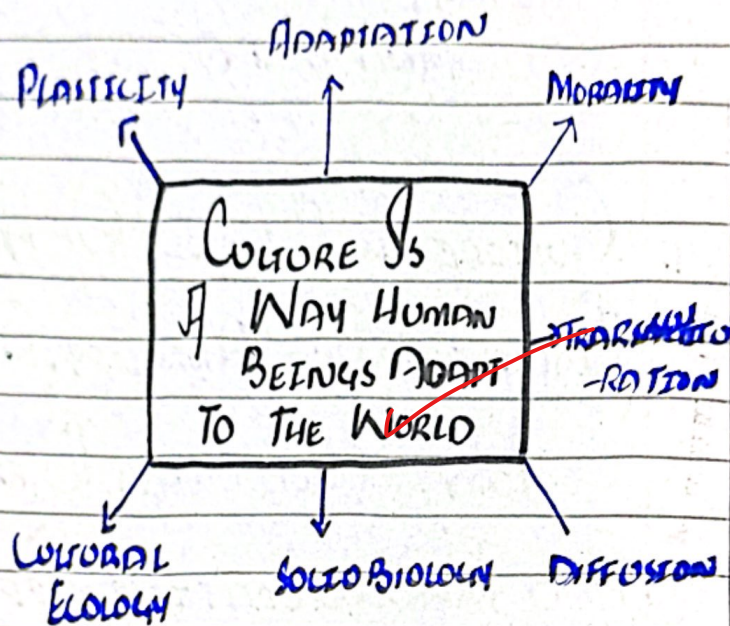 ADAPTATION
PLASTICITY
MORALITY
CULTURE IS
A WAY HUMAN
BEINGS ADAPT
TO THE WORLD
-RATION
CULTURAL
ECOLOGY
SOCIOBIOLOGY
DIFFUSION